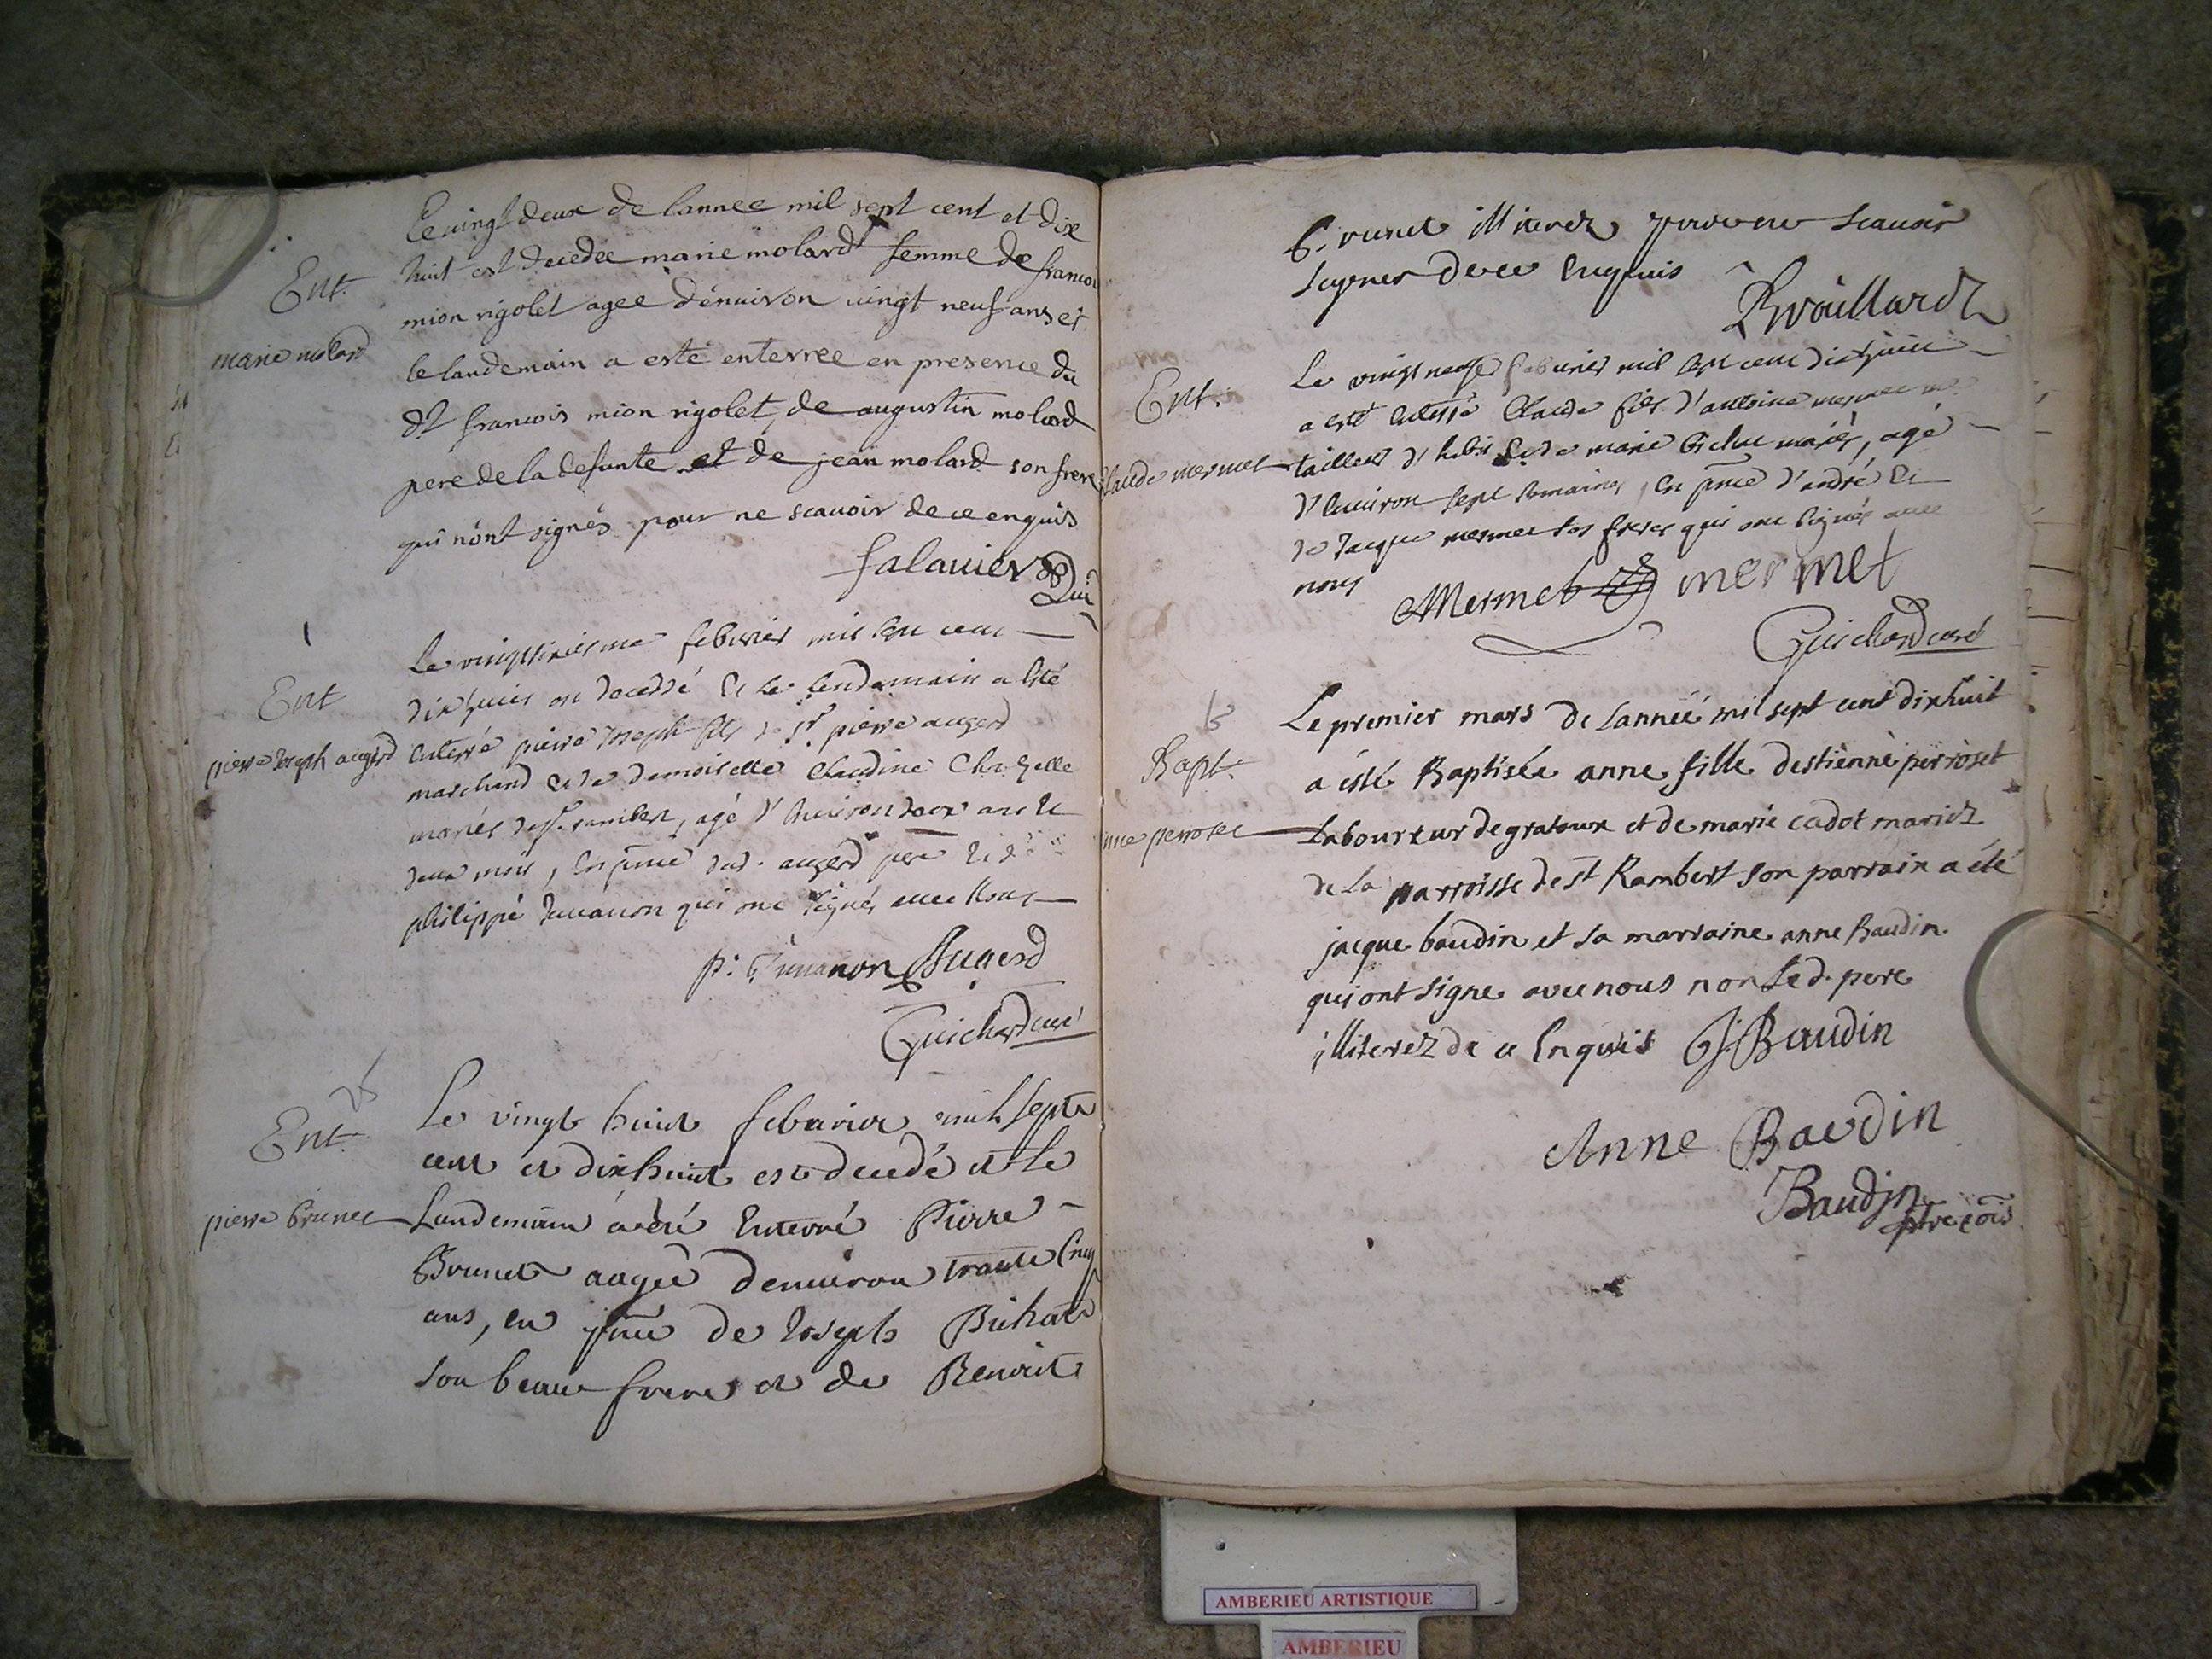 Le vingt deux de lannee mil sept cent et dix
Ent.
huit est decedee marie molard femme de francoi
marie molard
mion rigolet agee dénuiron vingt neuf ans et
le landemain a esté enterree en presence du
dt francois mion rigolet, de augustin molard
pere de la defunte et de jean molard son frere
qui nónt signés pour ne scauoir de ce enquis
falauier
Le vingtsixiesme feburier mil sept cent
Ent
dixhuict est decedé et le lendemain a esté
pierre Joseph augerd
enterré pierre Joseph fils de sr. pierre augerd
marchand et de demoiselle Claudine
mariés de st. rambert, agé d'enuiron deux ans et
deux mois, en pnce dud. augerd pere et de
philippe Juuanon qui ont signés auec nous
p. Juuanon Augerd
Guichard curé
Ent.
Le vingt huict febvrier mil sept
cent et dixhuict est decedé et le
pierre brunet
Landemain a été Enterré Pierre
Brunet aagée denuiron trante cinq
ans, en pnce de Joseph Bichat
son beau frere et de Benoit
brunet illiterez pour ne scauoir
signer de ce Enquis
Brouillard
Le vingt neuf feburier mil sept cent dixhuict
Ent.
a esté enterré Claude fils d'antoine mermet
claude mermet
tailleur d'habit et de marie mariés, agé
d'enuiron sept semaines, en pnce d'andré et
de Jacque mermet ses freres qui ont signés auec
nous
Mermet mermet
Guichard curé
Le premier mars de lanneé mil sept cent dixhuit
Bapt.
a ésté Baptisée anne fille destiènne perroset
anne perroset
Laboureur de gratoux et de marie cadot mariez
de la parroisse de st Rambert son parrain a été
jacque baudin et sa marraine anne Baudin
qui ont signe avec nous non led. pere
illiterez de ce Enquis J. Baudin
Anne Baudin
Baudin
ptre
AMBERIEU ARTISTIQUE
AMBERIEU